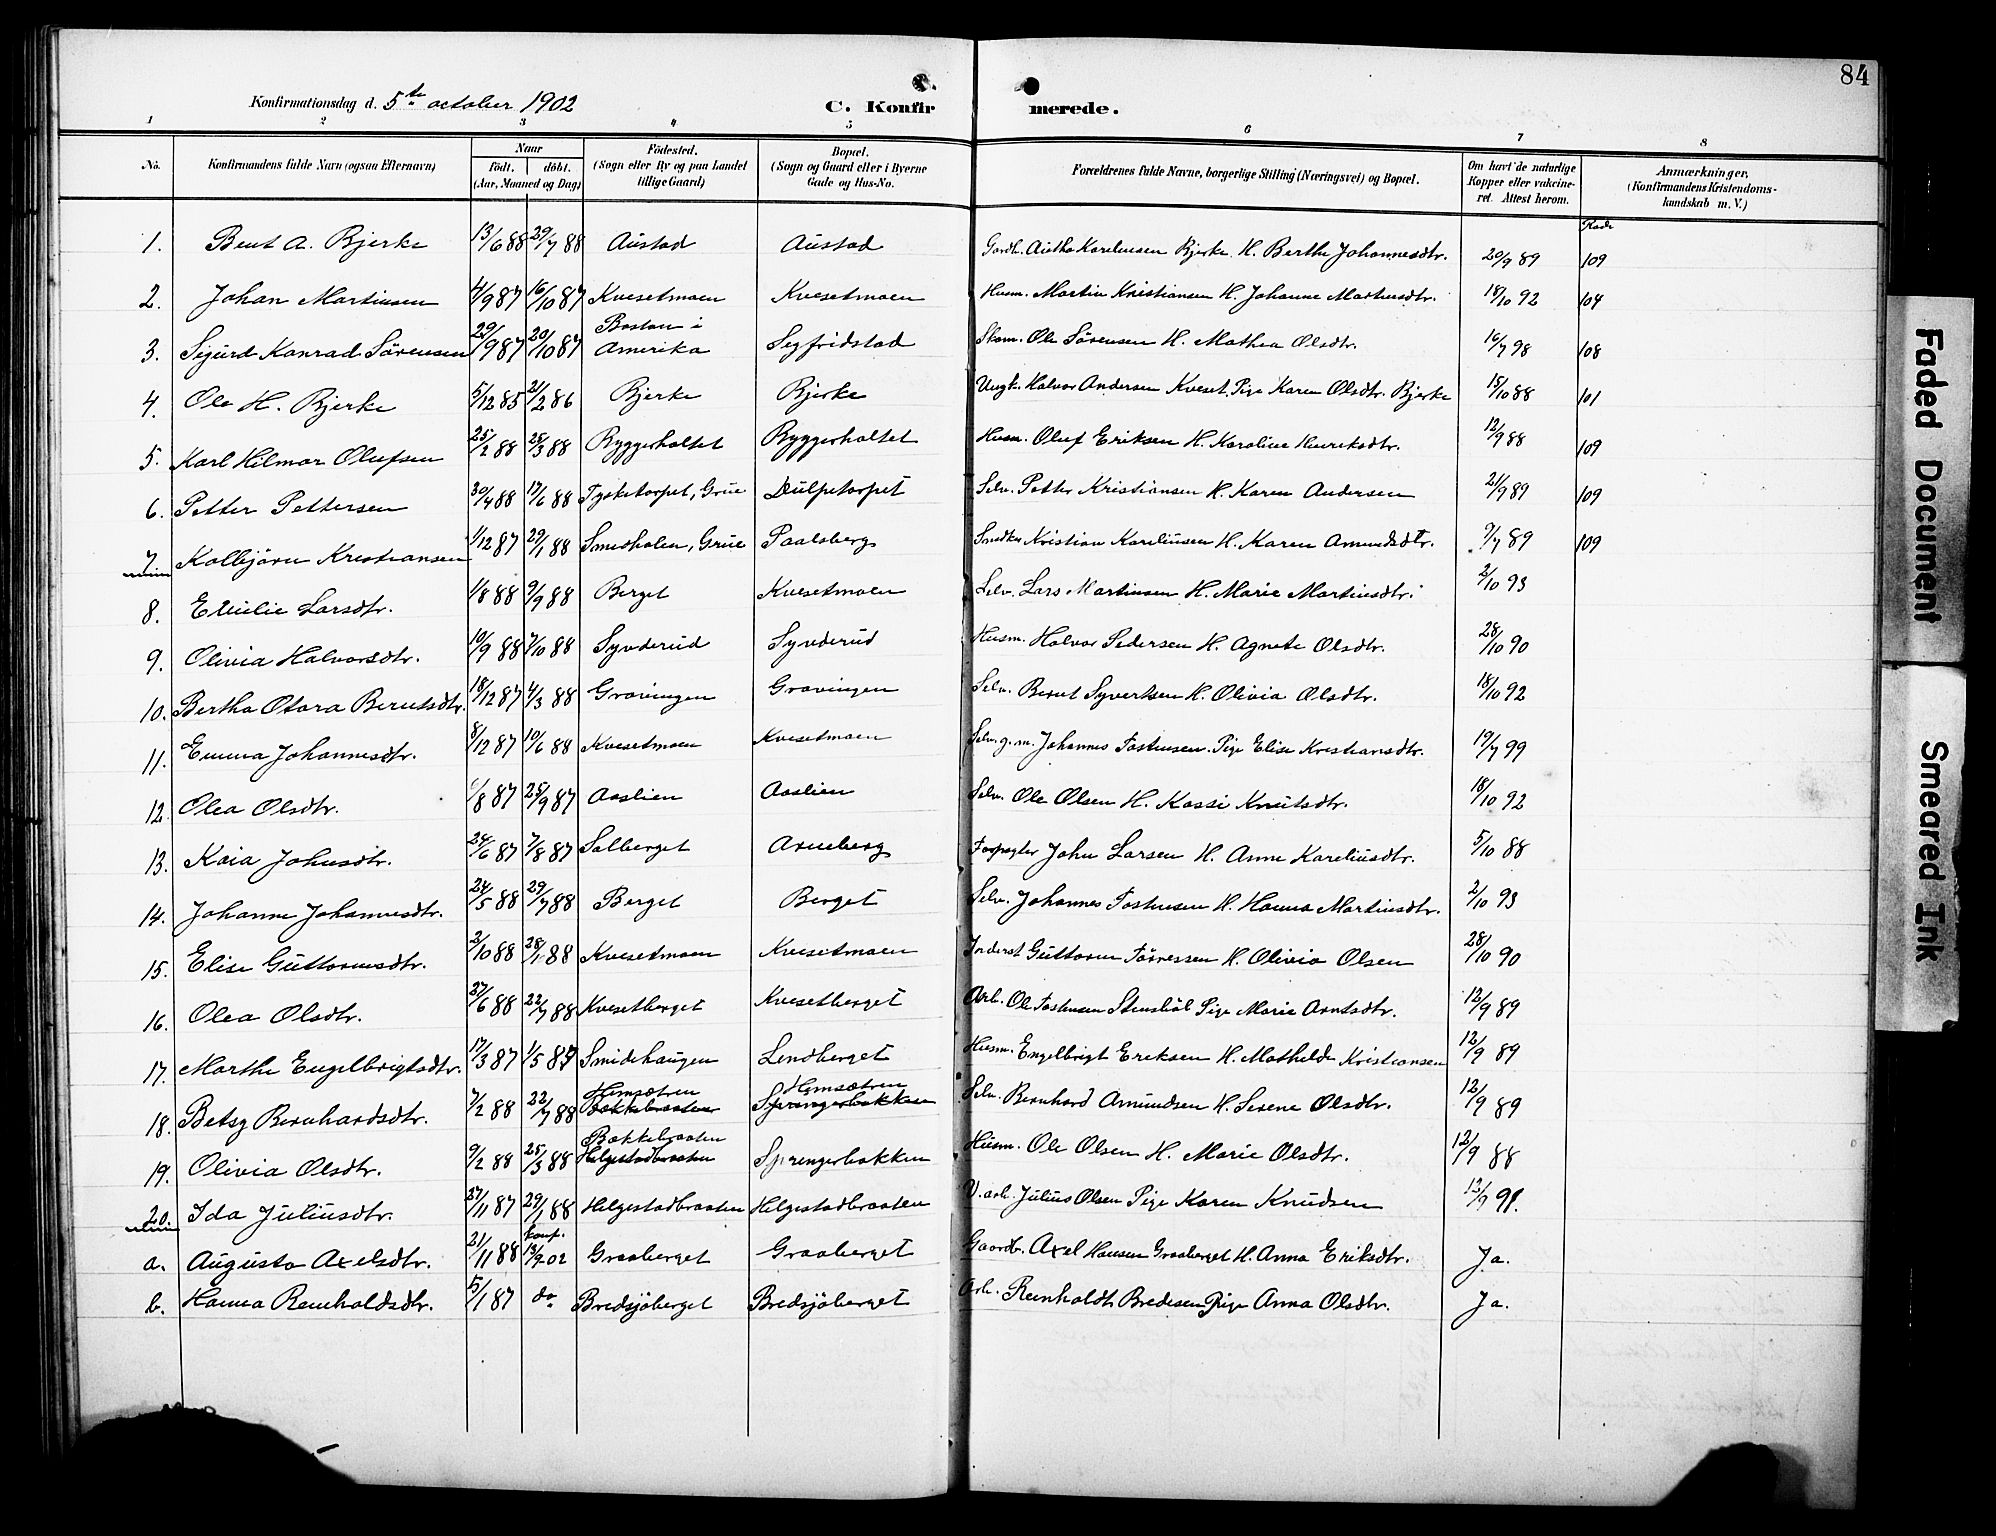 84
Konfirmationsdag d. 5te october 1902
C. Konfirmerede.
1 2 3 4 5 6 7 8
No. Konfirmandens fulde Navn (ogsaa Efternavn) Naar født. døbt. (Aar, Maaned og Dag) Födested. (Sogn eller By og paa Landet tillige Gaard) Bopæl. (Sogn og Gaard eller i Byerne Gade og Hus-No. Forældrenes fulde Navne, borgerlige Stilling (Næringsvei) og Bopæl. Om havt de naturlige Kopper eller vakcineret. Attest herom. Anmærkninger, (Konfirmandens Kristendomskundskab m. V.)
1. Bent A. Bjerke 13/6 88 29/7 88 Austad Austad Gardb. Autho Kareliusen Bjerke H. Berthe Johannesdtr. 20/9 89 109
2. Johan Martinsen 4/9 87 16/10 87 Kvesetmoen Kvesetmoen Husm. Martin Kristiansen H. Johanne Mathisdtr. 18/10 92 104
3. Sigurd Konrad Sörensen 29/9 87 20/10 87 Boston i Amerika Segfridstad Skom. Ole Sörensen H. Mathea Olsdtr. 16/7 98 108
4. Ole H. Bjerke 5/12 85 21/2 86 Bjerke Bjerke Ungk. Halvor Andersen Kveset, Pige Karen Olsdtr. Bjerke 15/10 88 101
5. Karl Hilmar Olufsen 25/2 88 25/3 88 Byggerholtet Byggerholtet Husm. Oluf Eriksen H. Karoline Henriksdtr. 12/9 88 109
6. Petter Pettersen 30/4 88 17/6 88 Tysketorpet, Grue Dulpetorpet Selv. Petter Kristiansen H. Karen Andersen 21/9 89 109
7. Kolbjörn Kristiansen 1/12 87 29/1 88 Smedholen, Grue Paalsberg Smedkn Kristian Kareliusen H. Karen Amundsdtr. 9/7 89 109
8. Emilie Larsdtr. 1/8 88 9/9 88 Berget Kvesetmoen Selv. Lars Martinsen H. Marie Martinsdtr. 2/10 93
9. Olivia Halvorsdtr. 10/9 88 7/10 88 Synderud Synderud Husm. Halvor Pedersen H. Agnete Olsdtr. 28/10 90
10. Bertha Otara Berntsdtr. 18/12 87 4/3 88 Gravingen Gravingen Selv. Bernt Syvertsen H. Olivia Olsdtr. 18/10 92
11. Emma Johannesdtr. 8/12 87 10/6 88 Kvesetmoen Kvesetmoen Selv. g. m. Johannes Tostensen. Pige Elise Kristiansdtr. 19/7 99
12. Olea Olsdtr. /8 87 25/9 87 Aaslien Aaslien Selv. Ole Olsen H. Kassi Knutsdtr. 18/10 92
13. Kaia Johnsdtr. 24/6 87 7/8 87 Solberget Arneberg Forpagter John Larsen H. Anne Kareliusdtr. 5/10 88
14. Johanne Johannesdtr. 24/5 88 29/7 88 Berget Berget Selv. Johannes Tostensen H. Hanna Martinsdtr. 2/10 93
15. Elise Guttormsdtr. 2/10 88 28/1 88 Kvesetmoen Kvesetmoen Inderst Guttorm Törressen H. Olivia Olsen 28/10 90
16. Olea Olsdtr. 27/6 88 22/7 88 Kvesetberget Kvesetberget Arb. Ole Tostensen Stensböl Pige Marie Arntsdtr. 12/9 89
17. Marthe Engelbrigtsdtr. 17/3 87 1/5 87 Smidehaugen Lendberget Husm. Engelbrigt Eriksen H. Mathilde Kristiansen 12/9 89
18. Betsy Bernhardsdtr. 7/2 88 22/7 88 Hemsætren Bakkebraaten Hemsætren Sprengerbakken Selv. Bernhard Amundsen H. Serene Olsdtr. 12/9 89
19. Olivia Olsdtr. 9/2 88 25/3 88 Bakkebraaten Helgestadbraaten Sprengerbakken Husm. Ole Olsen H. Marie Olsdtr. 12/9 88
20. Ida Juliusdtr. 27/11 87 29/1 88 Helgestadbraaten Helgestadbraaten V. arb. Julius Olsen Pige Karen Knudsen 12/9 91.
a. Augusta Axelsdtr. 21/11 88 konf. 13/9 02 Graaberget Graaberget Gaardbr. Axel Hansen Graaberget H. Anna Eriksdtr. Ja.
b. Hanna Reinholdsdtr. 5/1 87 do Bredsjöberget Bredsjöberget Arb. Reinholdt Bredesen Pige Anna Olsdtr. Ja.
Faded Document
Smeared Ink